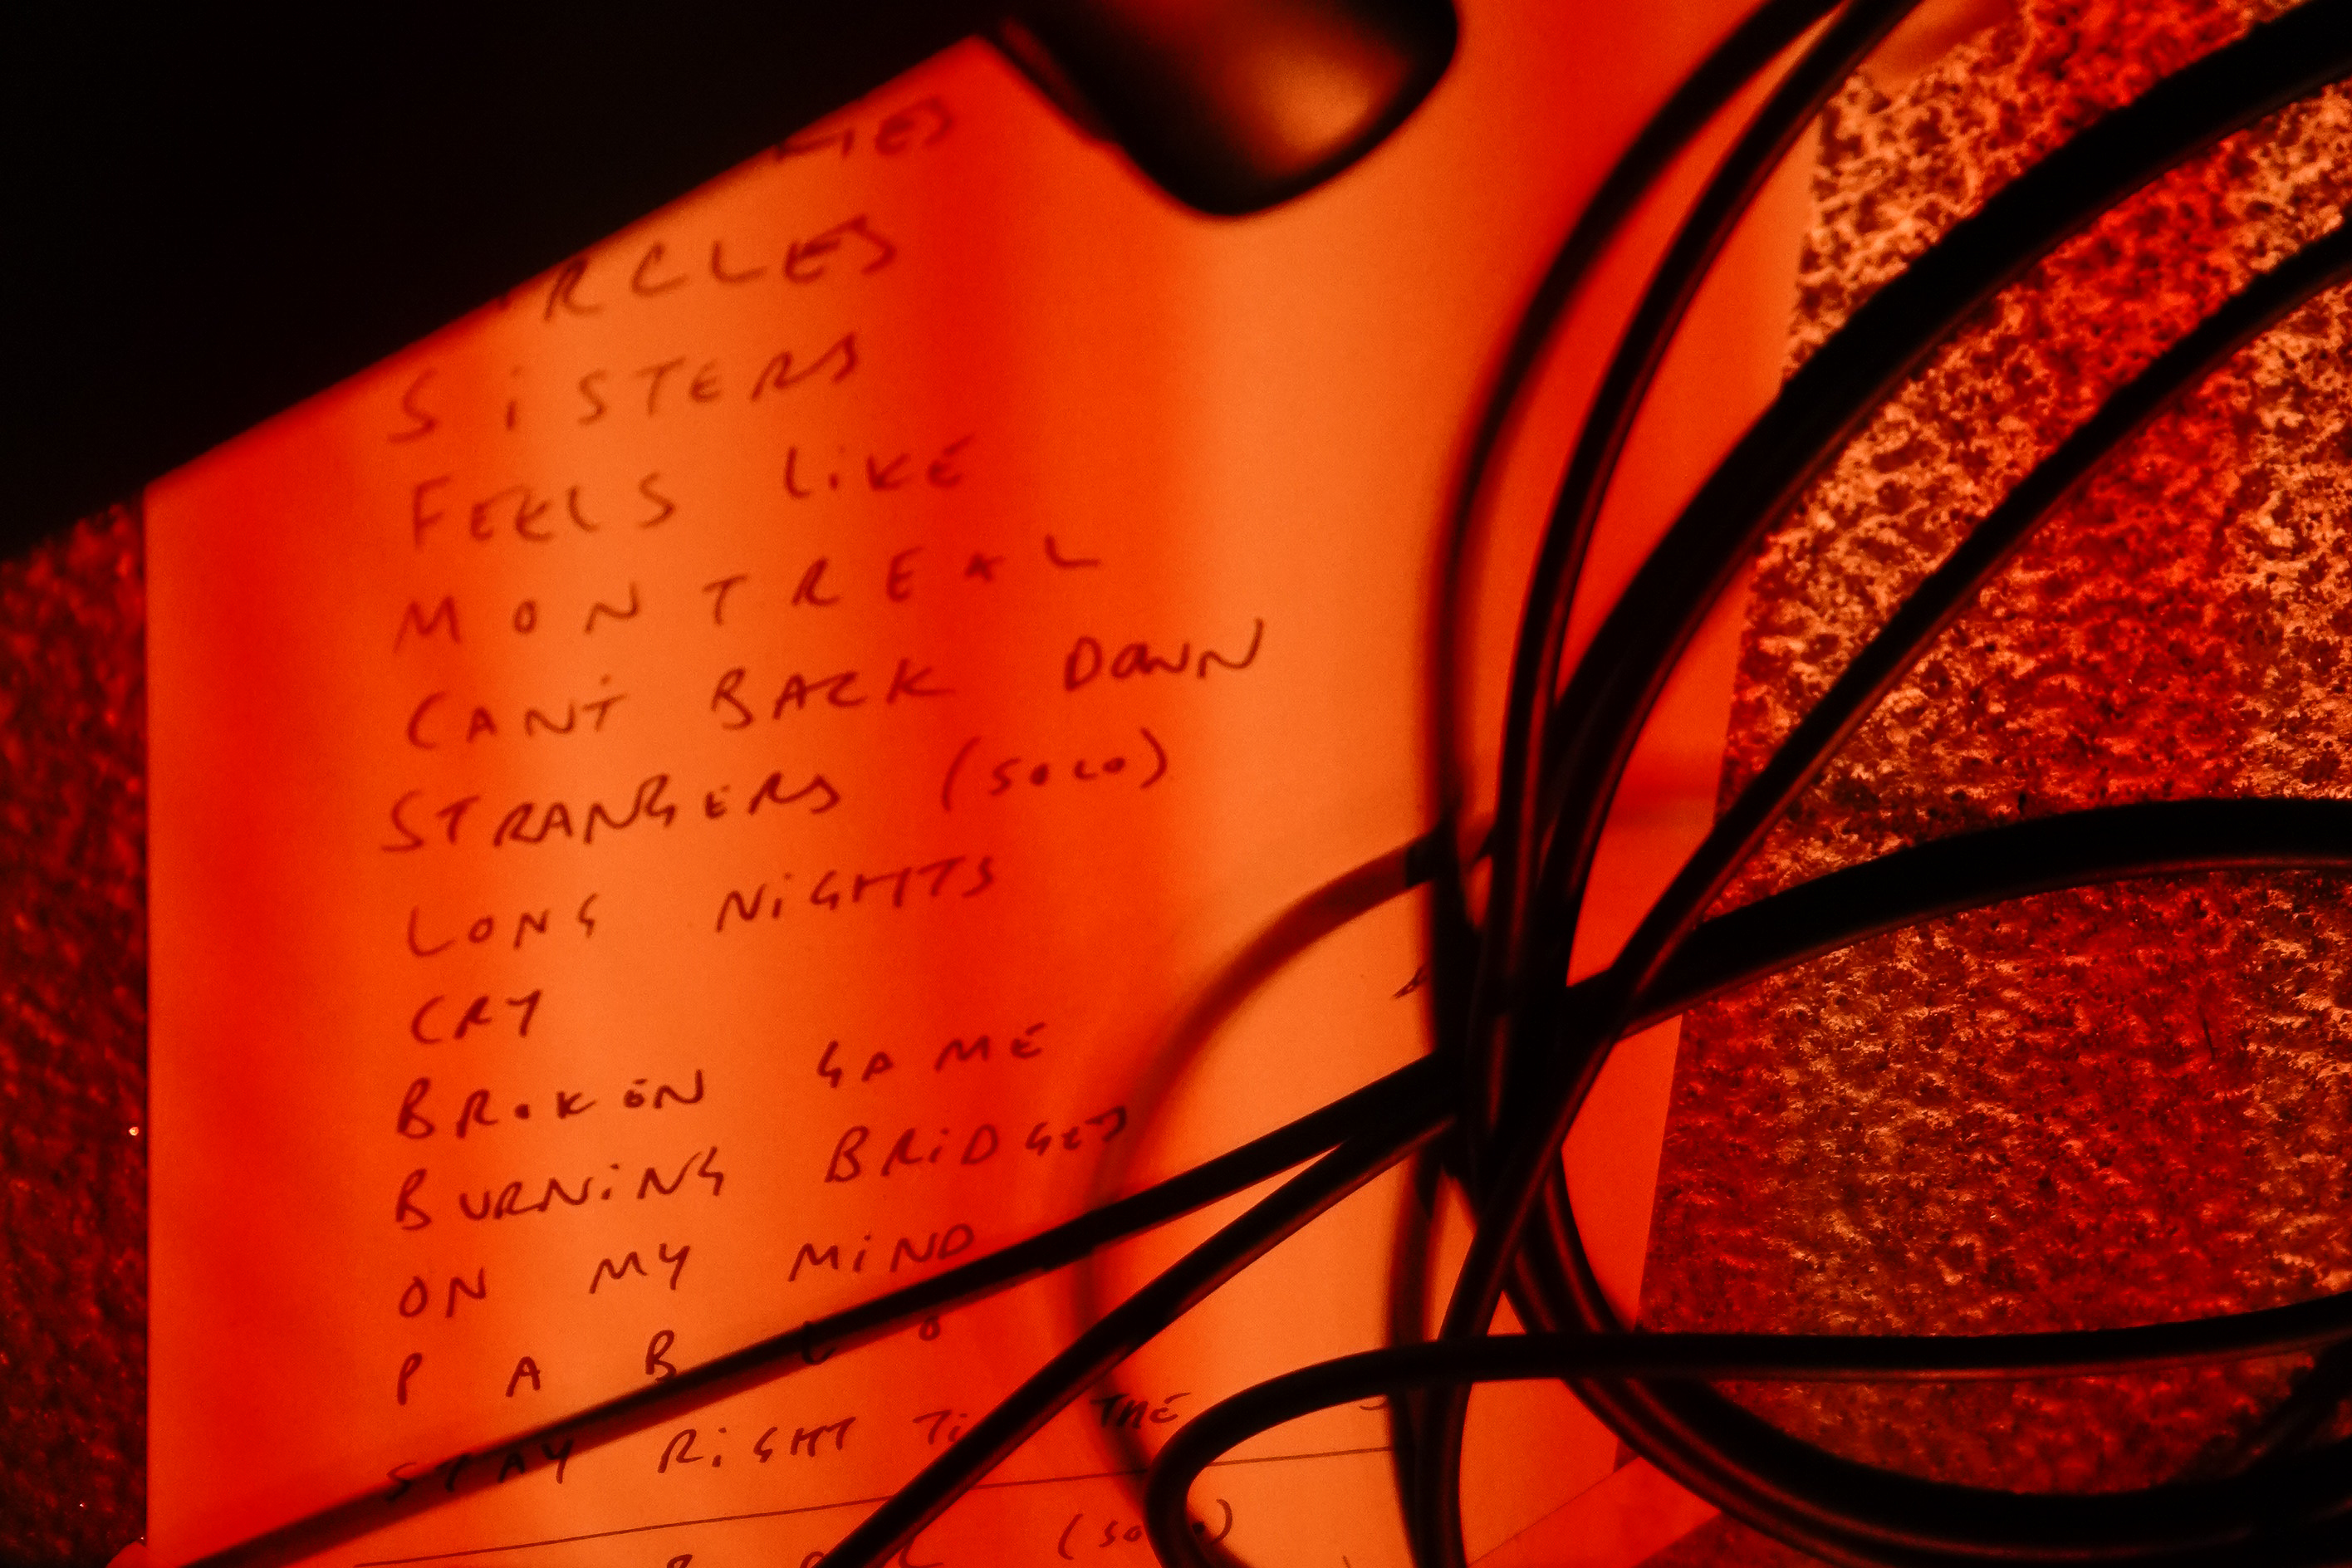 SiSTERS
FEELS LiKE
MONTREAL
CANT BACK DOWN
STRANGERS (SOLO)
LONG NiGHTS
CRY
BROKEN GAME
BURNiNG BRiDGES
ON MY MiND
PABLO
STAY RiGHT THE
(SOLO)